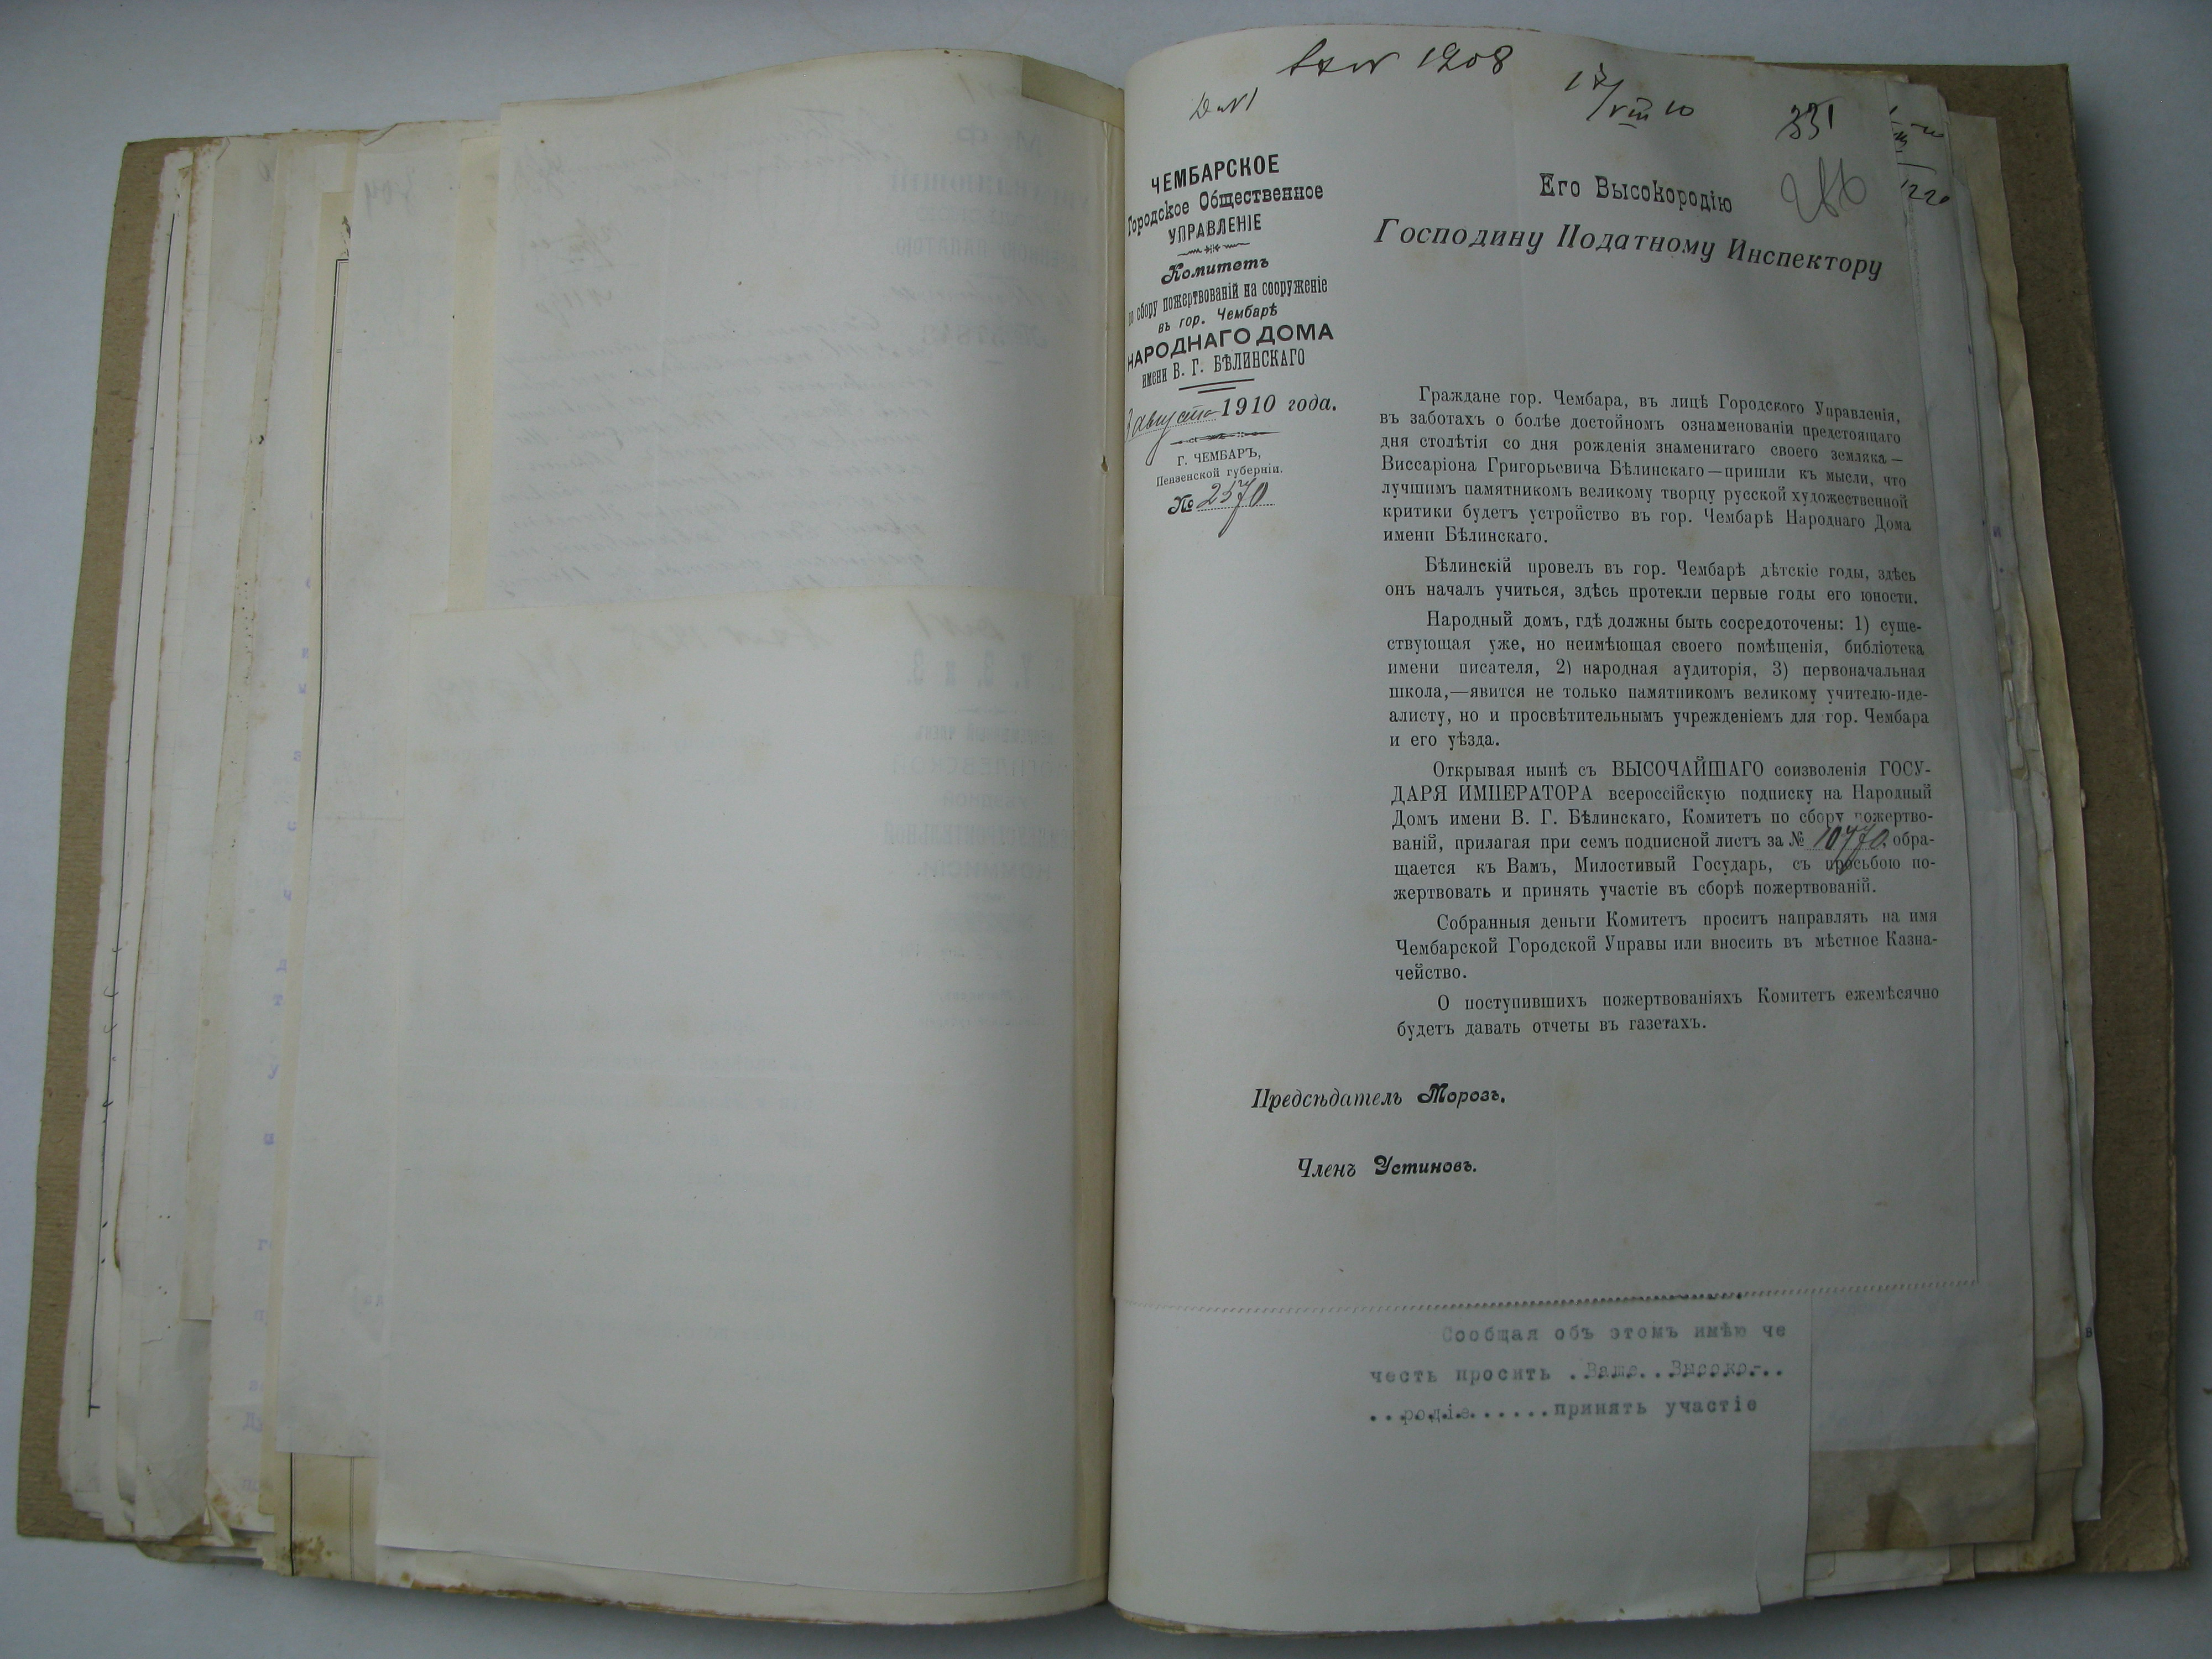 1908
17/VIII 10
331
ЧЕМБАРСКОЕ
Городское Общественное
УПРАВЛЕНІЕ
Комитетъ
по сбору пожертвованій на сооруженіе
въ гор. Чембарѣ
НАРОДНАГО ДОМА
имени В. Г. БѢЛИНСКАГО
августа 1910 года.
Г. ЧЕМБАРЪ,
Пензенской губерніи.
№ 2570
Его Высокородію
Господину Податному Инспектору
Граждане гор. Чембара, въ лицѣ Городского Управленія,
въ заботахъ о болѣе достойномъ ознаменованіи предстоящаго
дня столѣтія со дня рожденія знаменитаго своего земляка—
Виссаріона Григорьевича Бѣлинскаго—пришли къ мысли, что
лучшимъ памятникомъ великому творцу русской художественной
критики будетъ устройство въ гор. Чембарѣ Народнаго Дома
имени Бѣлинскаго.
Бѣлинскій провелъ въ гор. Чембарѣ дѣтскіе годы, здѣсь
онъ началъ учиться, здѣсь протекли первые годы его юности.
Народный домъ, гдѣ должны быть сосредоточены: 1) суще-
ствующая уже, но неимѣющая своего помѣщенія, библіотека
имени писателя, 2) народная аудиторія, 3) первоначальная
школа,—явится не только памятникомъ великому учителю-иде-
алисту, но и просвѣтительнымъ учрежденіемъ для гор. Чембара
и его уѣзда.
Открывая нынѣ съ ВЫСОЧАЙШАГО соизволенія ГОСУ-
ДАРЯ ИМПЕРАТОРА всероссійскую подписку на Народный
Домъ имени В. Г. Бѣлинскаго, Комитетъ по сбору пожертво-
ваній, прилагая при семъ подписной листъ за № 10770 обра-
щается къ Вамъ, Милостивый Государь, съ просьбою по-
жертвовать и принять участіе въ сборѣ пожертвованій.
Собранныя деньги Комитетъ проситъ направлять на имя
Чембарской Городской Управы или вносить въ мѣстное Казна-
чейство.
О поступившихъ пожертвованіяхъ Комитетъ ежемѣсячно
будетъ давать отчеты въ газетахъ.
Предсѣдатель Морозъ.
Членъ Устиновъ.
Сообщая объ этомъ имѣю че
честь просить .Ваше..Высоко-...
...родіе......принять участіе